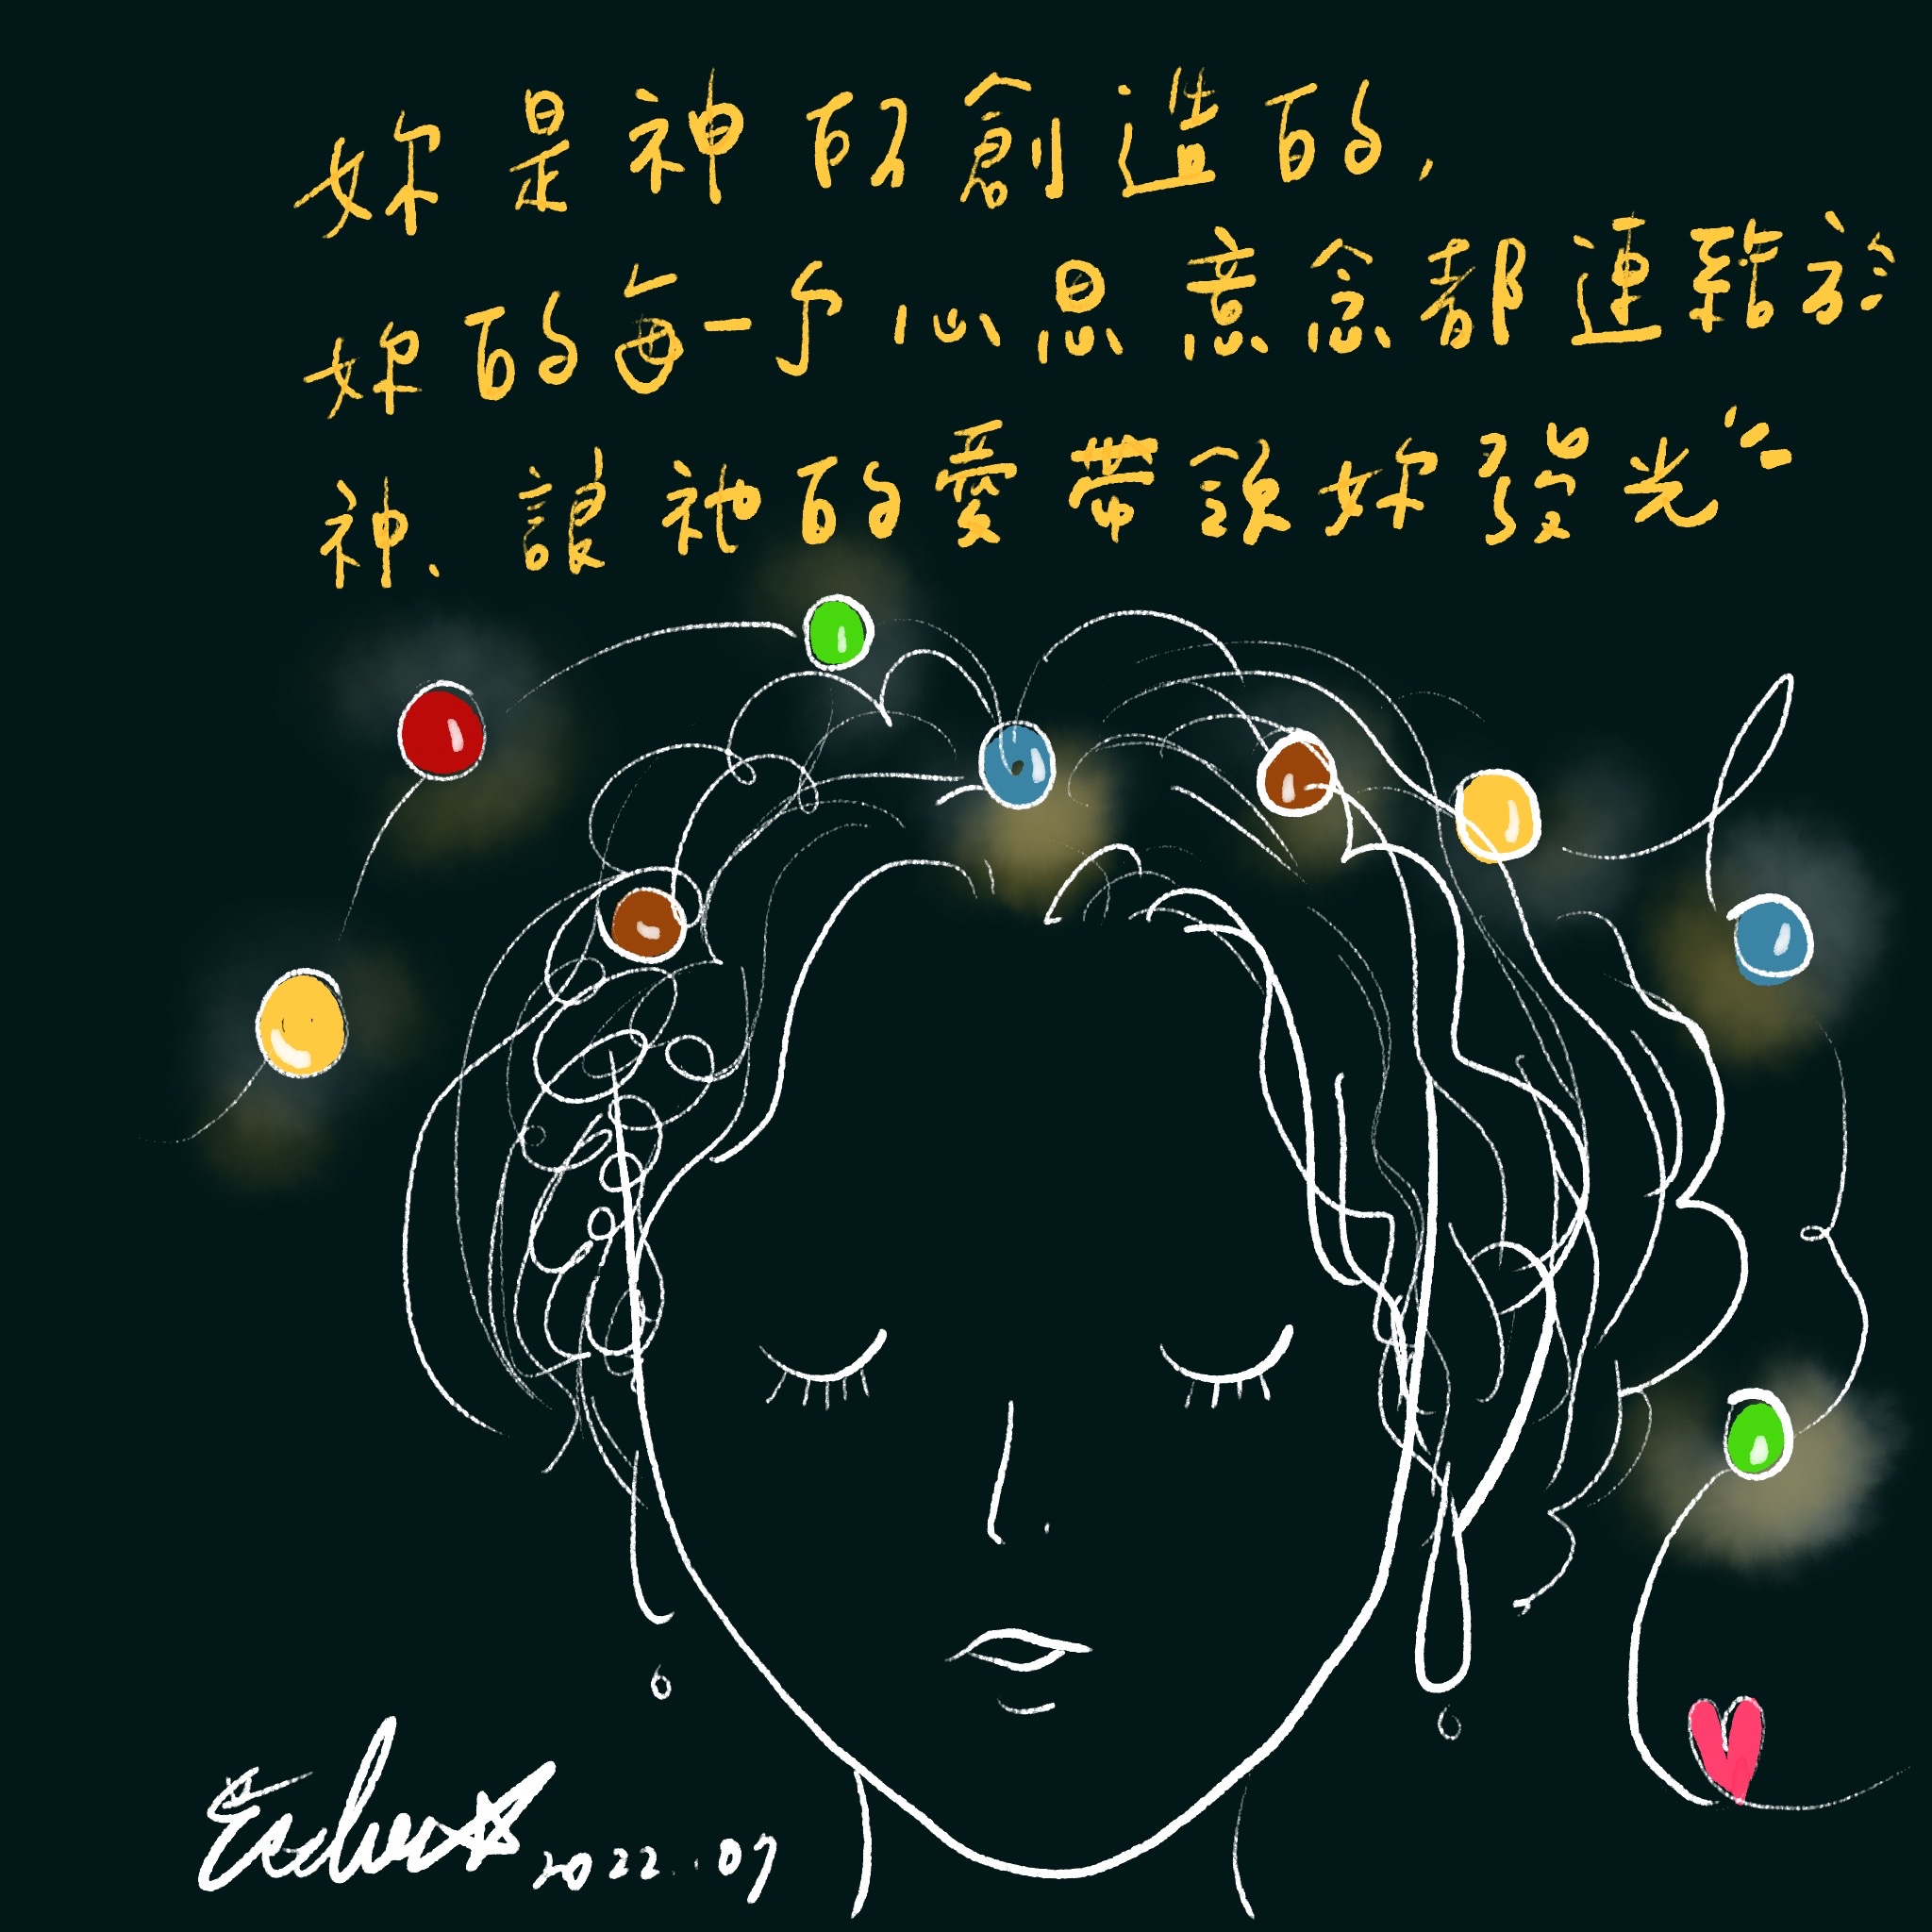 妳是神所創造的,
妳的每一個心思意念都連結於
神、讓祂的愛帶領妳發光
2022.07